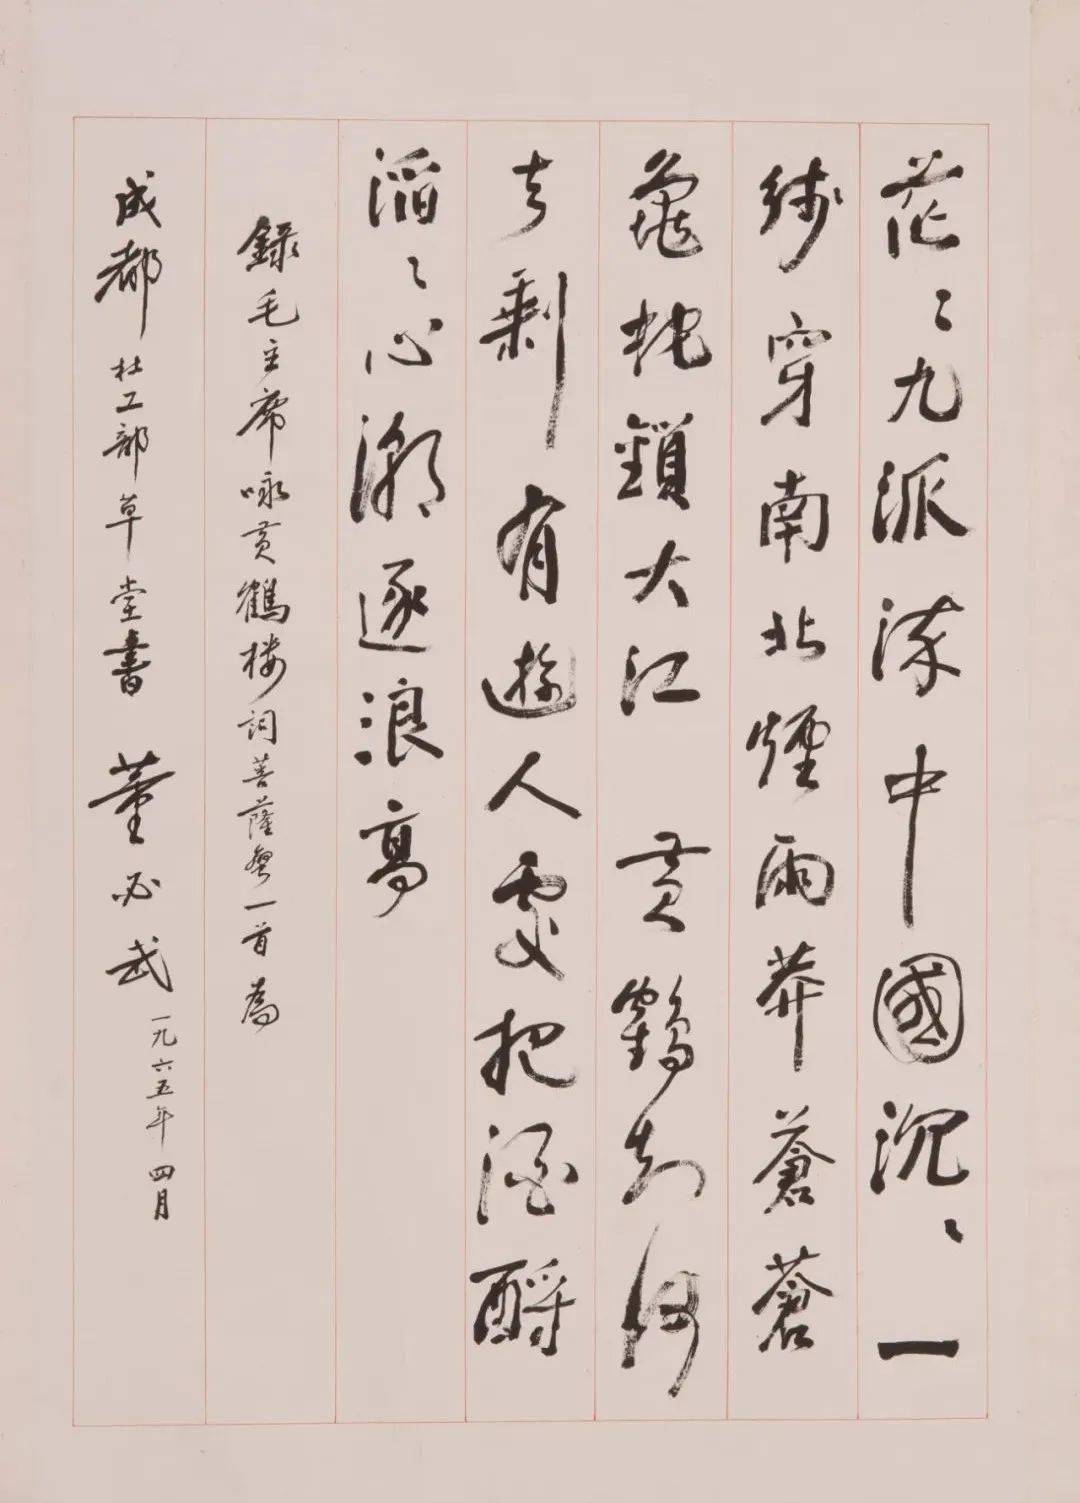 茫〻九派流中國沉〻一
綫穿南北煙雨莽蒼蒼
龜虵鎖大江 黄鶴知何
去剩有遊人處把酒酹
滔〻心潮逐浪高
錄毛主席咏黄鶴楼詞菩薩蛮一首為
成都杜工部草堂書 董必武 一九六五年四月